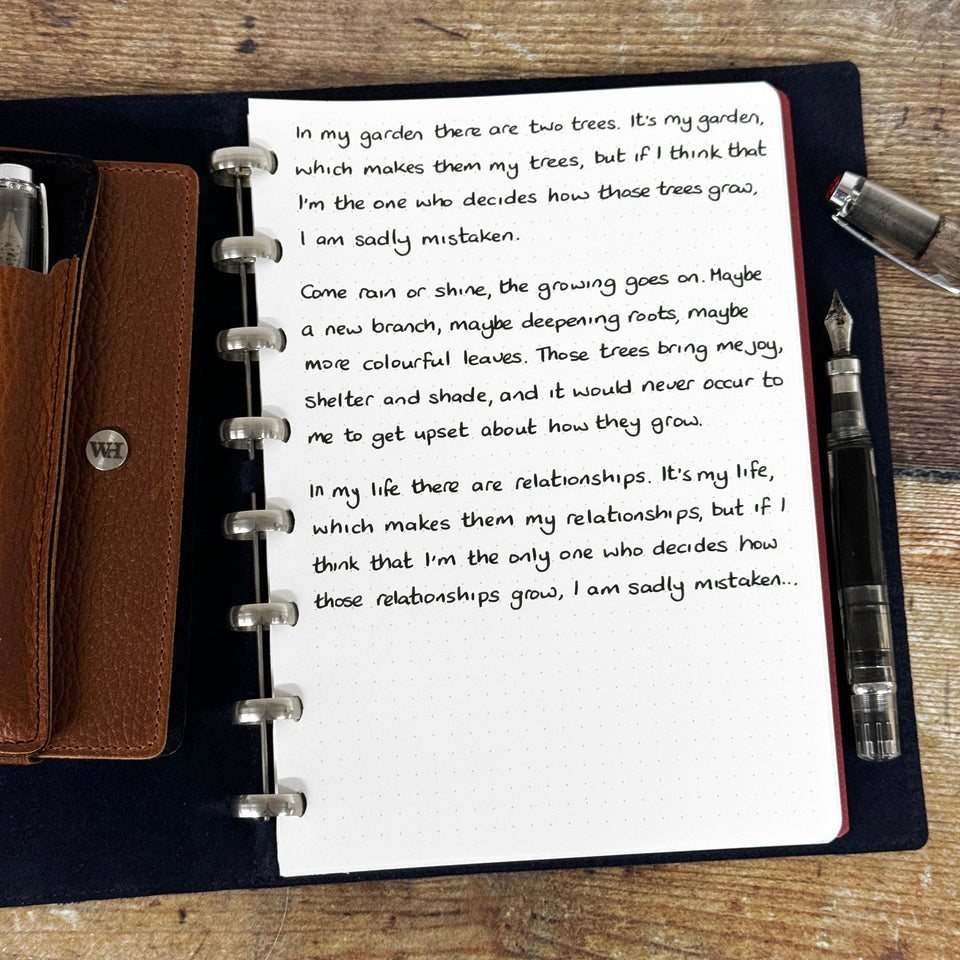 In my garden there are two trees. It's my garden,
which makes them my trees, but if I think that
I'm the one who decides how those trees grow,
I am sadly mistaken.
Come rain or shine, the growing goes on. Maybe
a new branch, maybe deepening roots, maybe
more colourful leaves. Those trees bring me joy,
shelter and shade, and it would never occur to
me to get upset about how they grow.
In my life there are relationships. It's my life,
which makes them my relationships, but if I
think that I'm the only one who decides how
those relationships grow, I am sadly mistaken...
WH